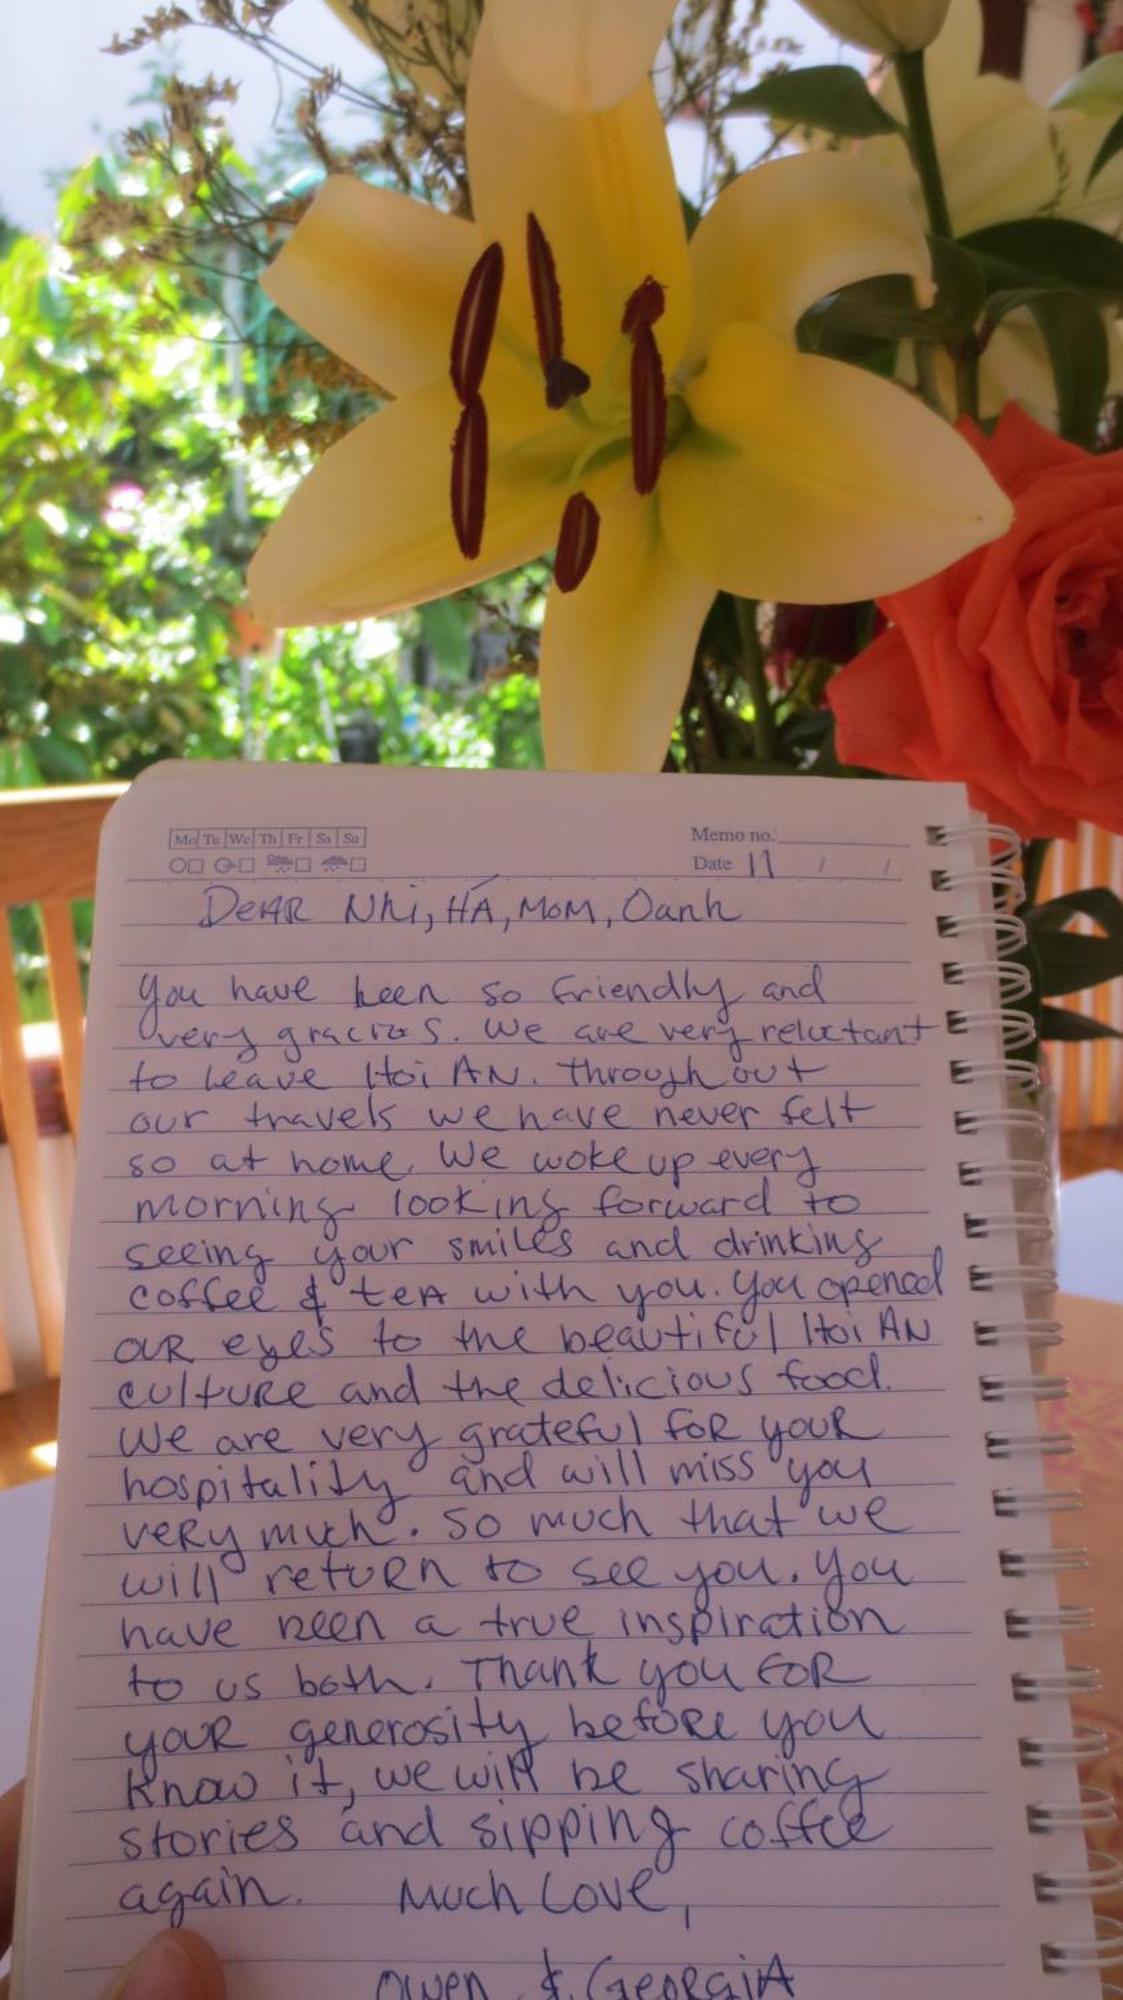 Mo Tu We Th Fr Sa Su
Memo no.
Date 17 / /
DeAR Nhi, HÁ, MoM, Oanh
You have been so friendly and
very gracious. We are very reluctant
to leave Hoi AN. Throughout
our travels we have never felt
so at home. We woke up every
morning looking forward to
seeing your smiles and drinking
coffee & teA with you. You opened
our eyes to the beautiful Hoi AN
culture and the delicious food.
We are very grateful for your
hospitality and will miss you
very much. So much that we
will return to see you. You
have been a true inspiration
to us both. Thank you for
your generosity before you
know it, we will be sharing
stories and sipping coffee
again. Much Love,
Owen & GeorgiA